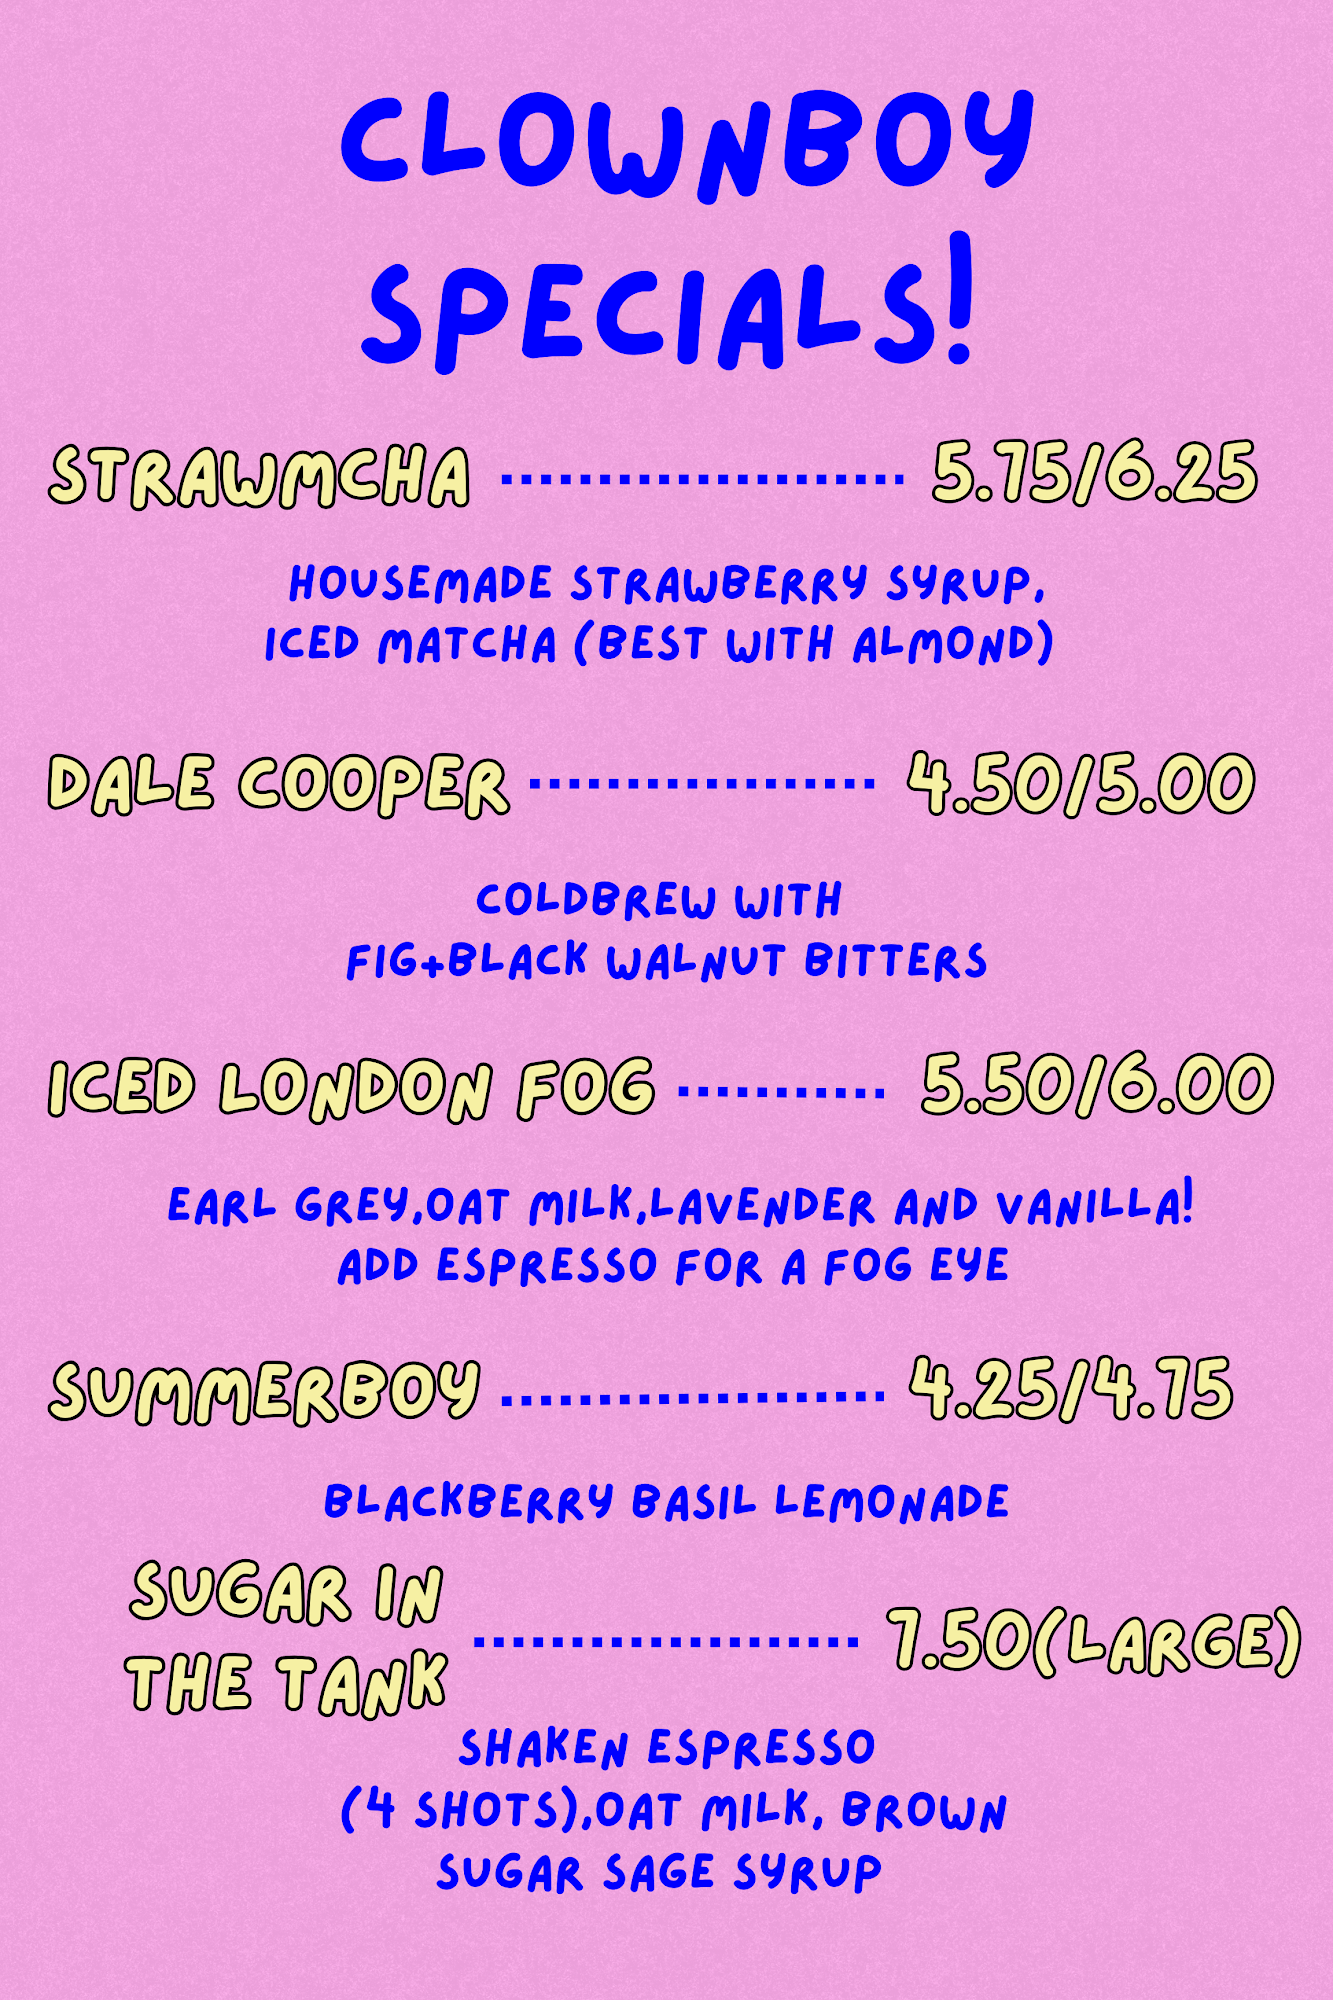 CLOWNBOY
SPECIALS!
STRAWMCHA .................... 5.75/6.25
HOUSEMADE STRAWBERRY SYRUP,
ICED MATCHA (BEST WITH ALMOND)
DALE COOPER .................. 4.50/5.00
COLDBREW WITH
FIG+BLACK WALNUT BITTERS
ICED LONDON FOG ........... 5.50/6.00
EARL GREY,OAT MILK,LAVENDER AND VANILLA!
ADD ESPRESSO FOR A FOG EYE
SUMMERBOY .................... 4.25/4.75
BLACKBERRY BASIL LEMONADE
SUGAR IN
THE TANK .................... 7.50(LARGE)
SHAKEN ESPRESSO
(4 SHOTS),OAT MILK, BROWN
SUGAR SAGE SYRUP